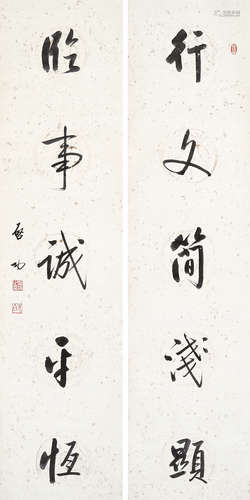 行文简浅顯
临事诚平恒
啓功